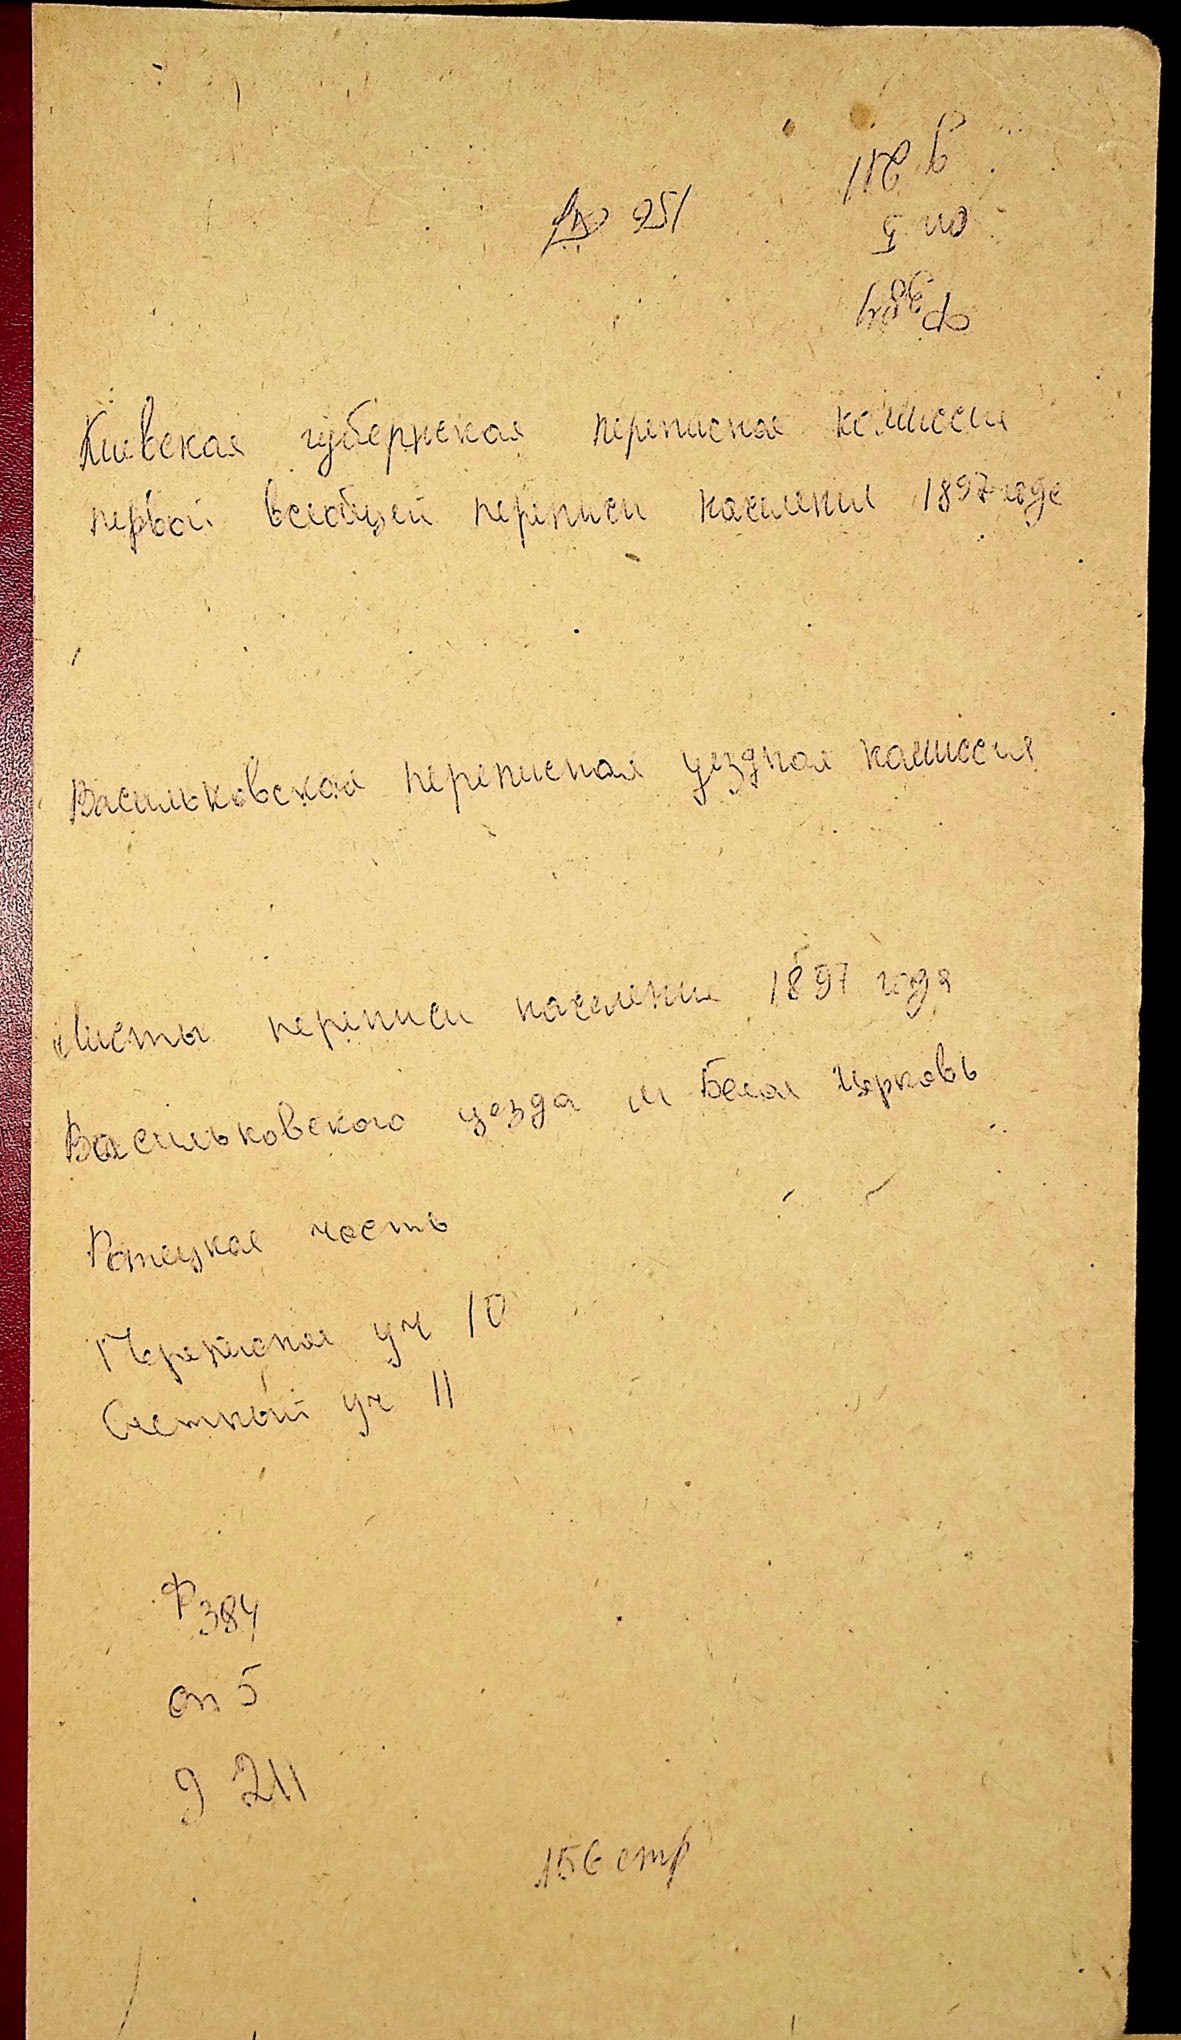 д 211
оп 5
Ф 384
Киевская губернская переписная комиссия
первой всеобщей переписи населения 1897 года
Васильковская переписная уездная комиссия
Листы переписи населения 1897 года
Васильковского уезда м Белая Церковь
часть
Переписная уч 10
Счетный уч 11
Ф 384
оп 5
д 211
156 стр